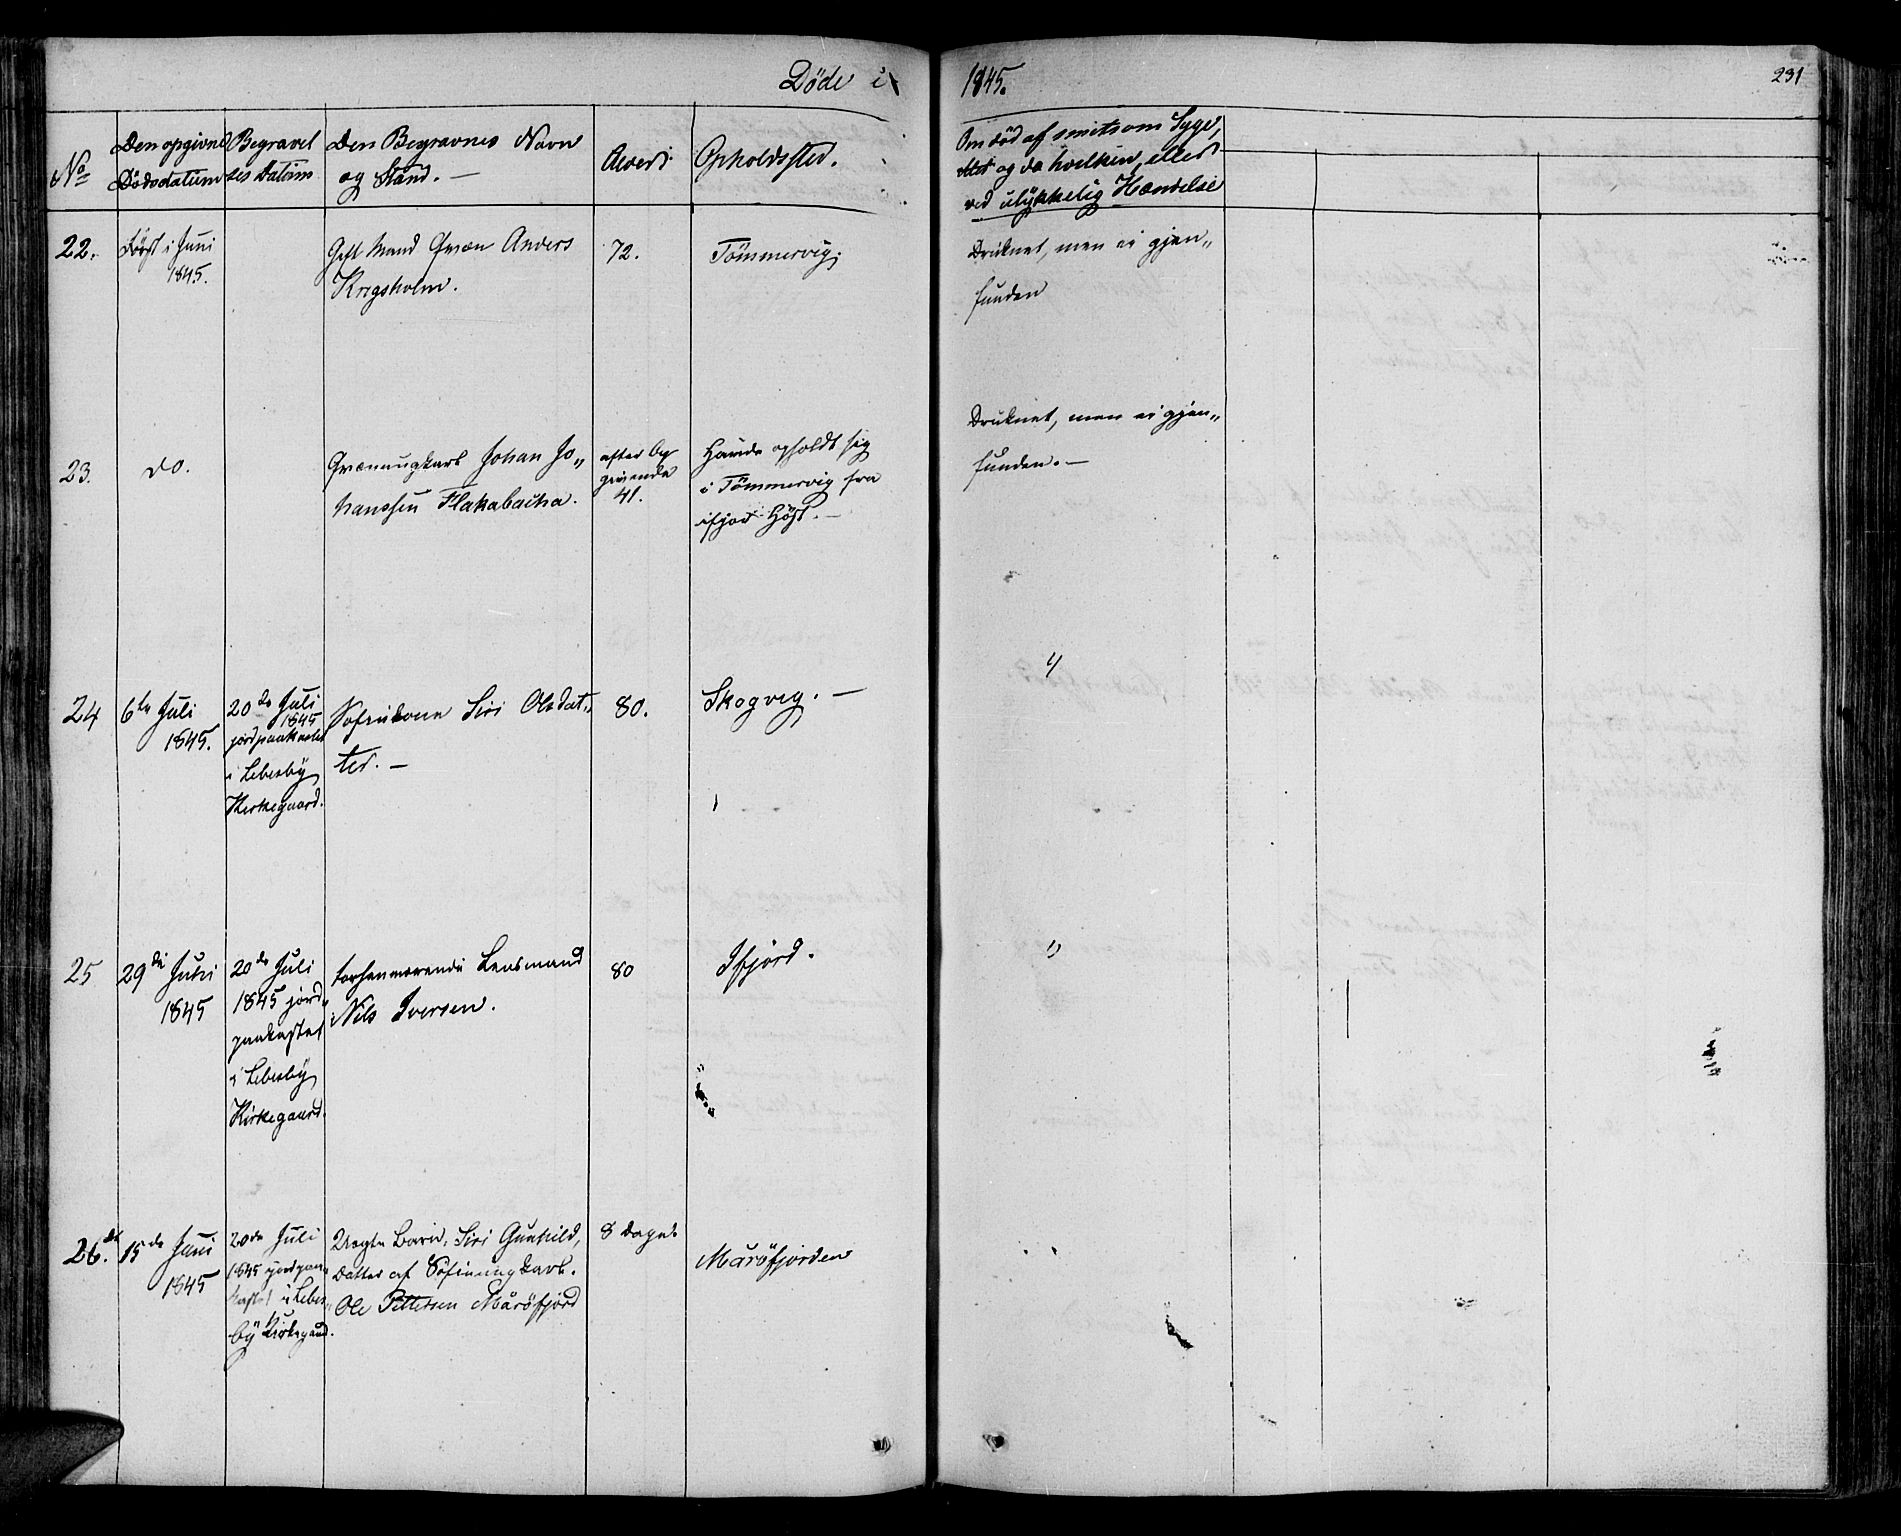 Döde i 1845.
231
No
Den opgivne Dödsdatum
Begravelses Datum
Den Begravnes Navn og Stand. —
Alder.
Opholdssted.
Om död af smitsom Syge, eller og da hvilken, eller ved ulykkelig Hændelse
22.
Först i Juni
1845.
Gift Mand Qvæn Anders
Krigsholm.
72.
Tömmervig.
Druknet, men ei gjen„
funden
23.
do.
Qvænungkarl Johan Jo„
hanssen Flakabacka.
efter Op
givende
41.
Havde opholdt sig
i Tömmervig fra
ifjor Höst. —
Druknet, men ei gjen„
funden. —
24
6te Juli
1845.
20de Juli
1845
jordpaakastet
i Lebesby
Kirkegaard.
Söfinkone Siri Olsdat„
ter. —
80.
Skogvig. —
"
25
29de Juni
1845
20de Juli
1845 jord„
paakastet
i Lebesby
Kirkegaard.
Lensmand
Nils Iversen.
80
Ifjord.
"
26.
15de Juni
1845
20de Juli
1845 jordpaa„
kastet i Lebes„
by Kirkegaard.
Uægte Barn, Siri Gunhild,
Datter af Söfinungkarl.
Ole Pettersen Maröfjord
8 Dage.
Maröfjorden